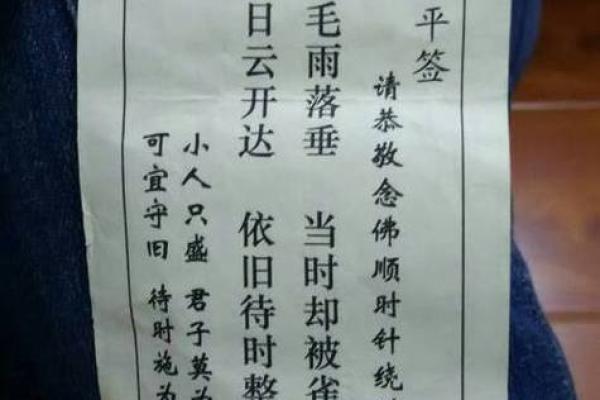 平签
请恭敬念佛顺时针绕
毛雨落垂 当时却被雀
日云开达 依旧待时整
小人只盛 君子莫为
可宜守旧 待时施为